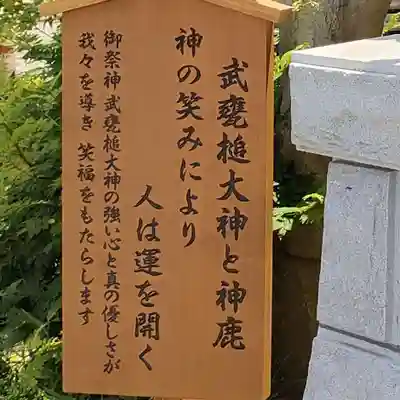 武甕槌大神と神鹿
神の笑みにより
人は運を開く
御祭神武甕槌大神の強い心と真の優しさが
我々を導き 笑福をもたらします